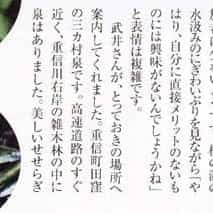 水汲みのにぎわいぶりを見ながら「や
はり、自分に直接メリットのないも
のには興味がないんでしょうかね」
と表情は複雑です。
武井さんが、とっておきの場所へ
案内してくれました。重信町田窪
の三カ村泉です。高速道路のすぐ
近く、重信川右岸の雑木林の中に
泉はありました。美しいせせらぎ